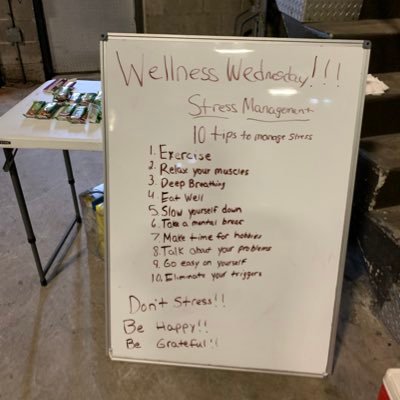 Wellness Wednesday!!!
Stress Management
10 tips to manage stress
1. Exercise
2. Relax your muscles
3. Deep Breathing
4. Eat Well
5. Slow yourself down
6. Take a mental break
7. Make time for hobbies
8. Talk about your problems
9. Go easy on yourself
10. Eliminate your triggers
Don't Stress!!
Be Happy!!
Be Grateful!!